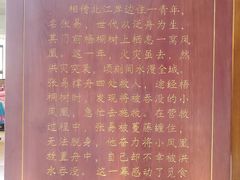 相传北江岸边住一青年，
名张易，世代以泛舟为生，
其门前梧桐树上栖息一窝凤
凰。这一年，火灾虽去，然
洪灾突袭，顷刻间水漫全城，
张易撑舟四处救人，途经梧
桐树时，发现将被吞没的小
凤凰，急忙去施救。在营救
过程中，张易被蔓藤缠住，
无法脱身，他奋力将小凤凰
放置舟中，自己却不幸被洪
水吞没。这一幕感动了觅食